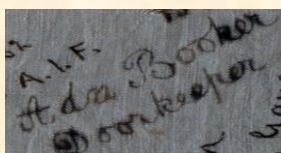 A. I. F.
Ada Booker
Bookkeeper